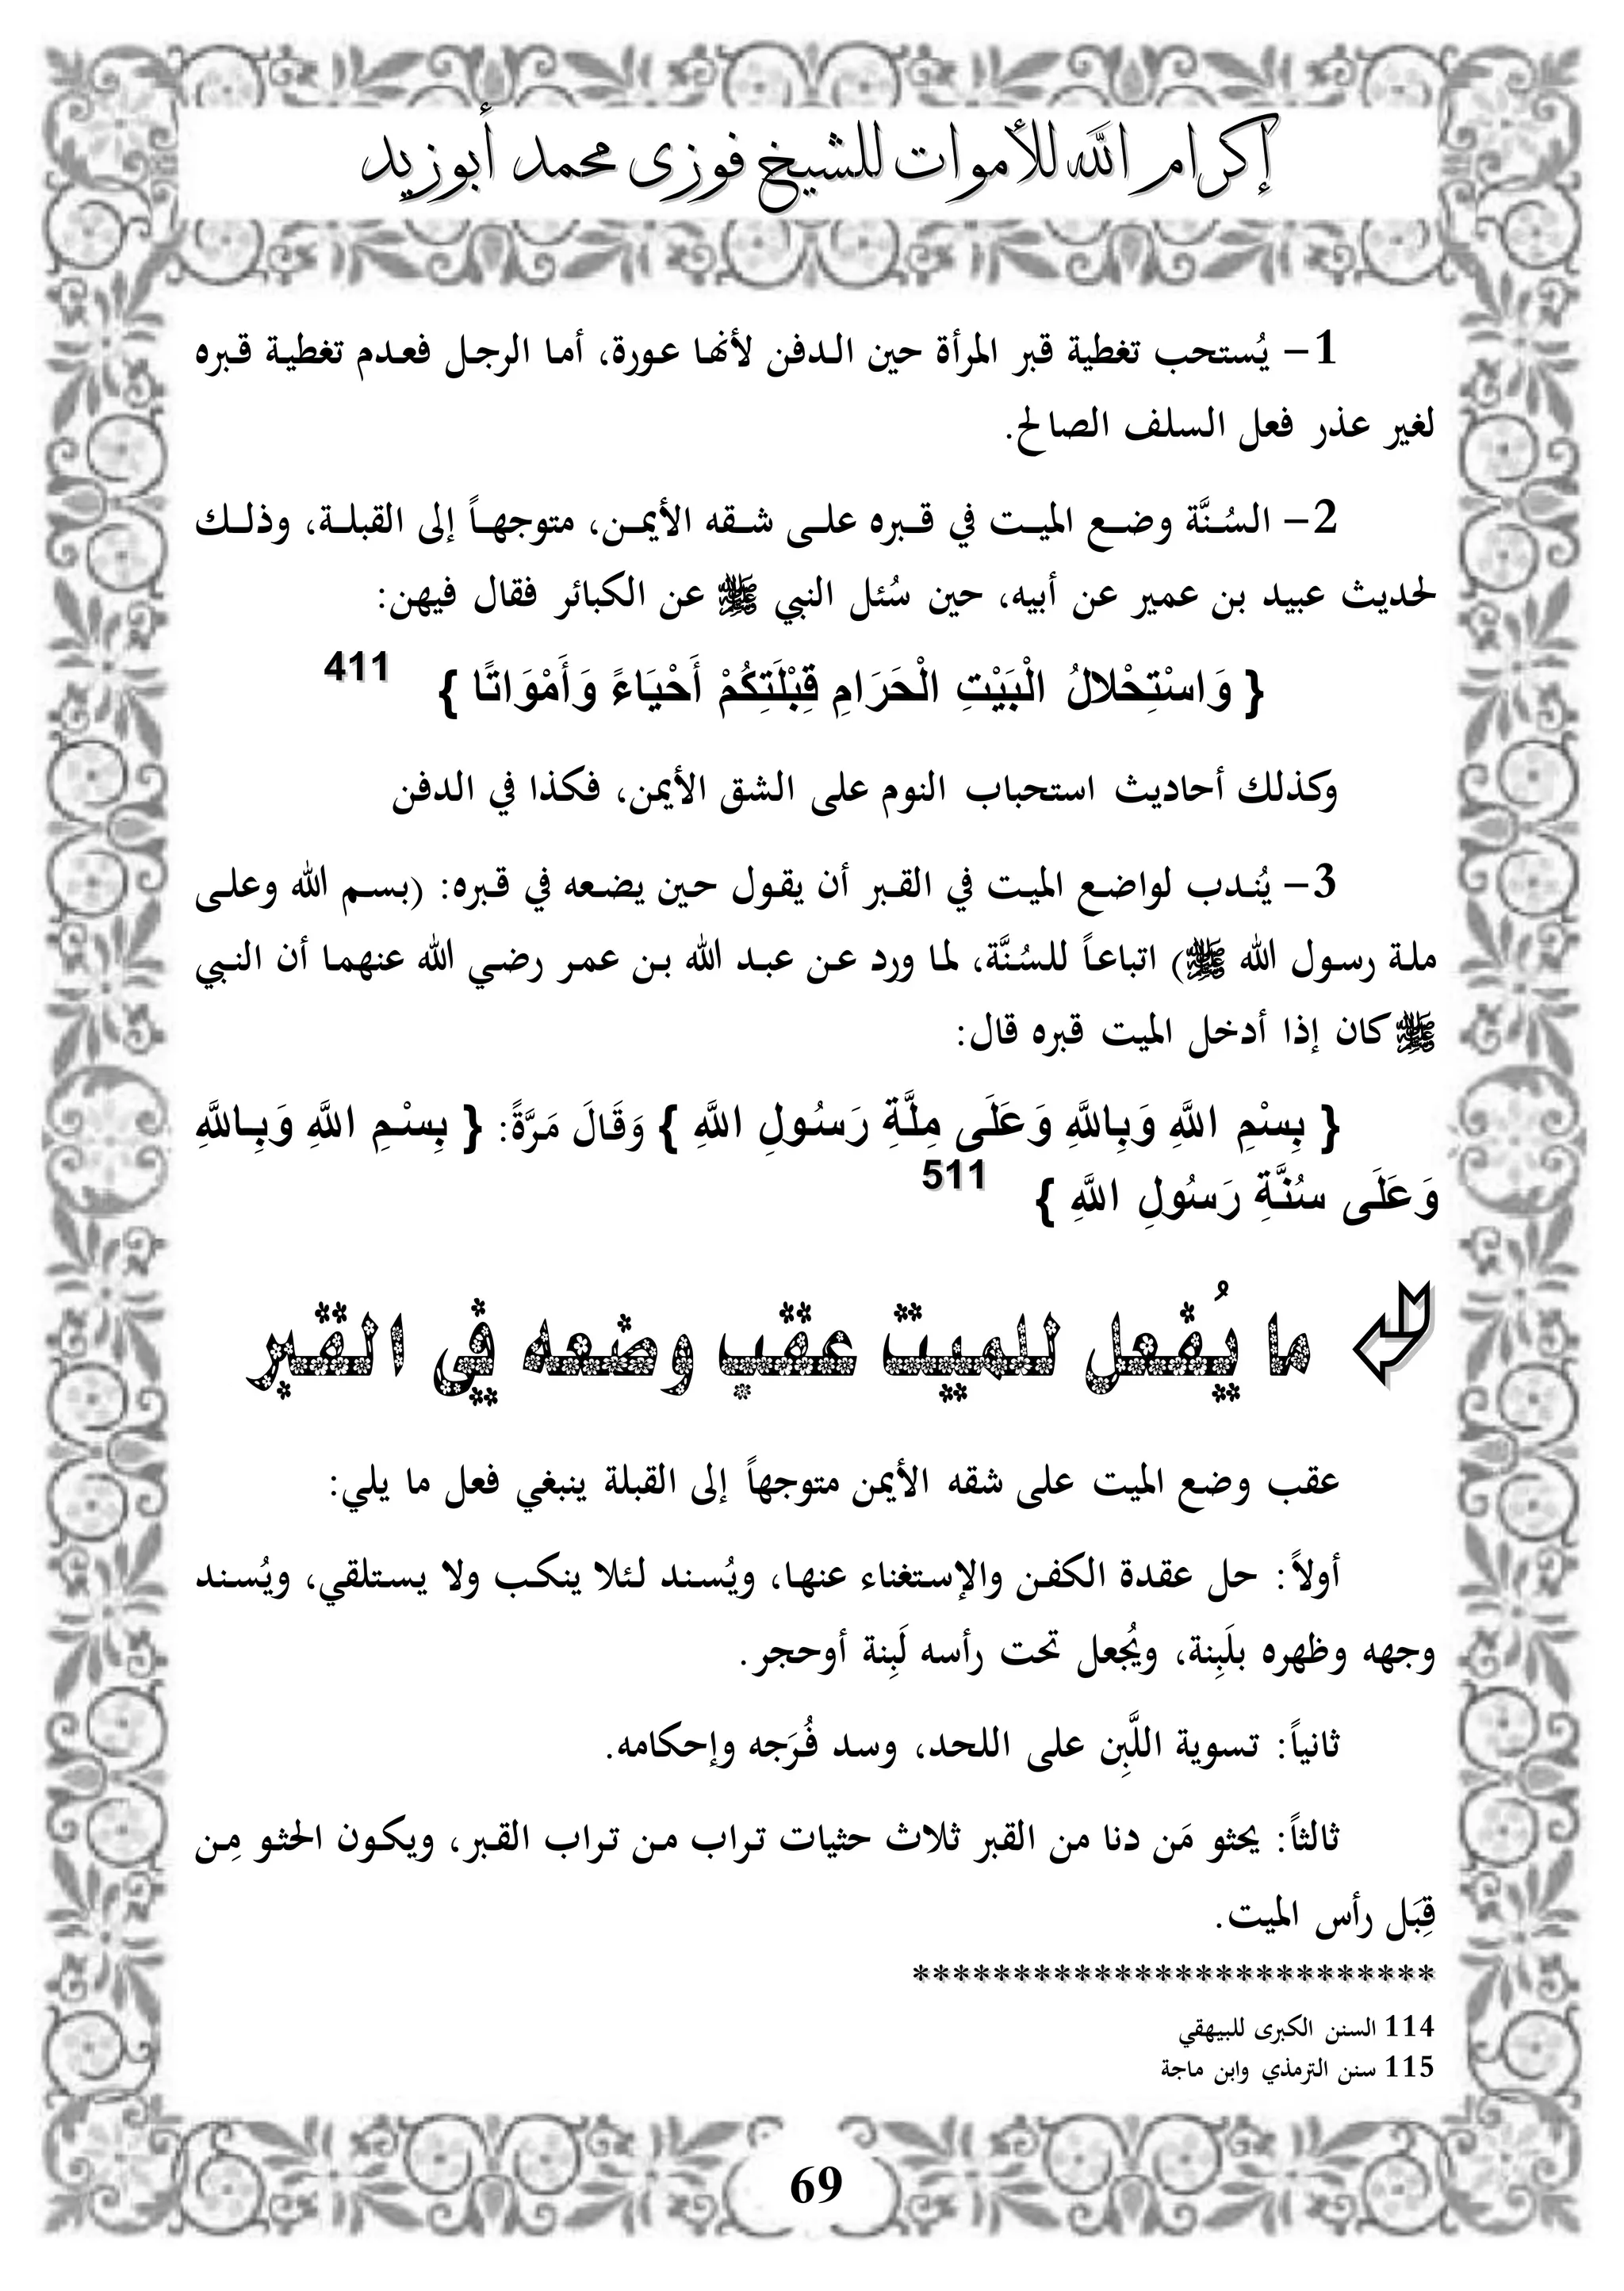 إكرام الله للأموات للشيخ فوزى محمد أبوزيد
1- يُستحب تغطية قبر المرأة حين الدفن لأنها عورة، أما الرجل فعدم تغطية قبره
لغير عذر فعل السلف الصالح.
2- السُنَّة وضع الميت في قبره على شقه الأيمن، متوجهاً إلى القبلة، وذلك
لحديث عبيد بن عمير عن أبيه، حين سُئل النبي ﷺ عن الكبائر فقال فيهن:
{ وَاسْتِحْلالُ الْبَيْتِ الْحَرَامِ قِبْلَتِكُمْ أَحْيَاءً وَأَمْوَاتًا } 411
وكذلك أحاديث استحباب النوم على الشق الأيمن، فكذا في الدفن
3- يُندب لواضع الميت في القبر أن يقول حين يضعه في قبره: (بسم الله وعلى
ملة رسول الله ﷺ) اتباعاً للسُنَّة، لما ورد عن عبد الله بن عمر رضي الله عنهما أن النبي
ﷺ كان إذا أدخل الميت قبره قال:
{ بِسْمِ اللَّهِ وَبِاللَّهِ وَعَلَى مِلَّةِ رَسُولِ اللَّهِ } وَقَالَ مَرَّةً: { بِسْمِ اللَّهِ وَبِاللَّهِ
وَعَلَى سُنَّةِ رَسُولِ اللَّهِ } 511
ما يُفعل للميت عقب وضعه في القبر
عقب وضع الميت على شقه الأيمن متوجهاً إلى القبلة ينبغي فعل ما يلي:
أولاً: حل عقدة الكفن والإستغناء عنها، ويُسند لئلا ينكب ولا يستلقي، ويُسند
وجهه وظهره بلَبِنة، ويُجعل تحت رأسه لَبِنة أوحجر.
ثانياً: تسوية اللَّبِن على اللحد، وسد فُرَجه وإحكامه.
ثالثاً: يحثو مَن دنا من القبر ثلاث حثيات من تراب القبر، ويكون الحثو مِن
قِبَل رأس الميت.
**************************
114 السنن الكبرى للبيهقي
115 سنن الترمذي وابن ماجة
69